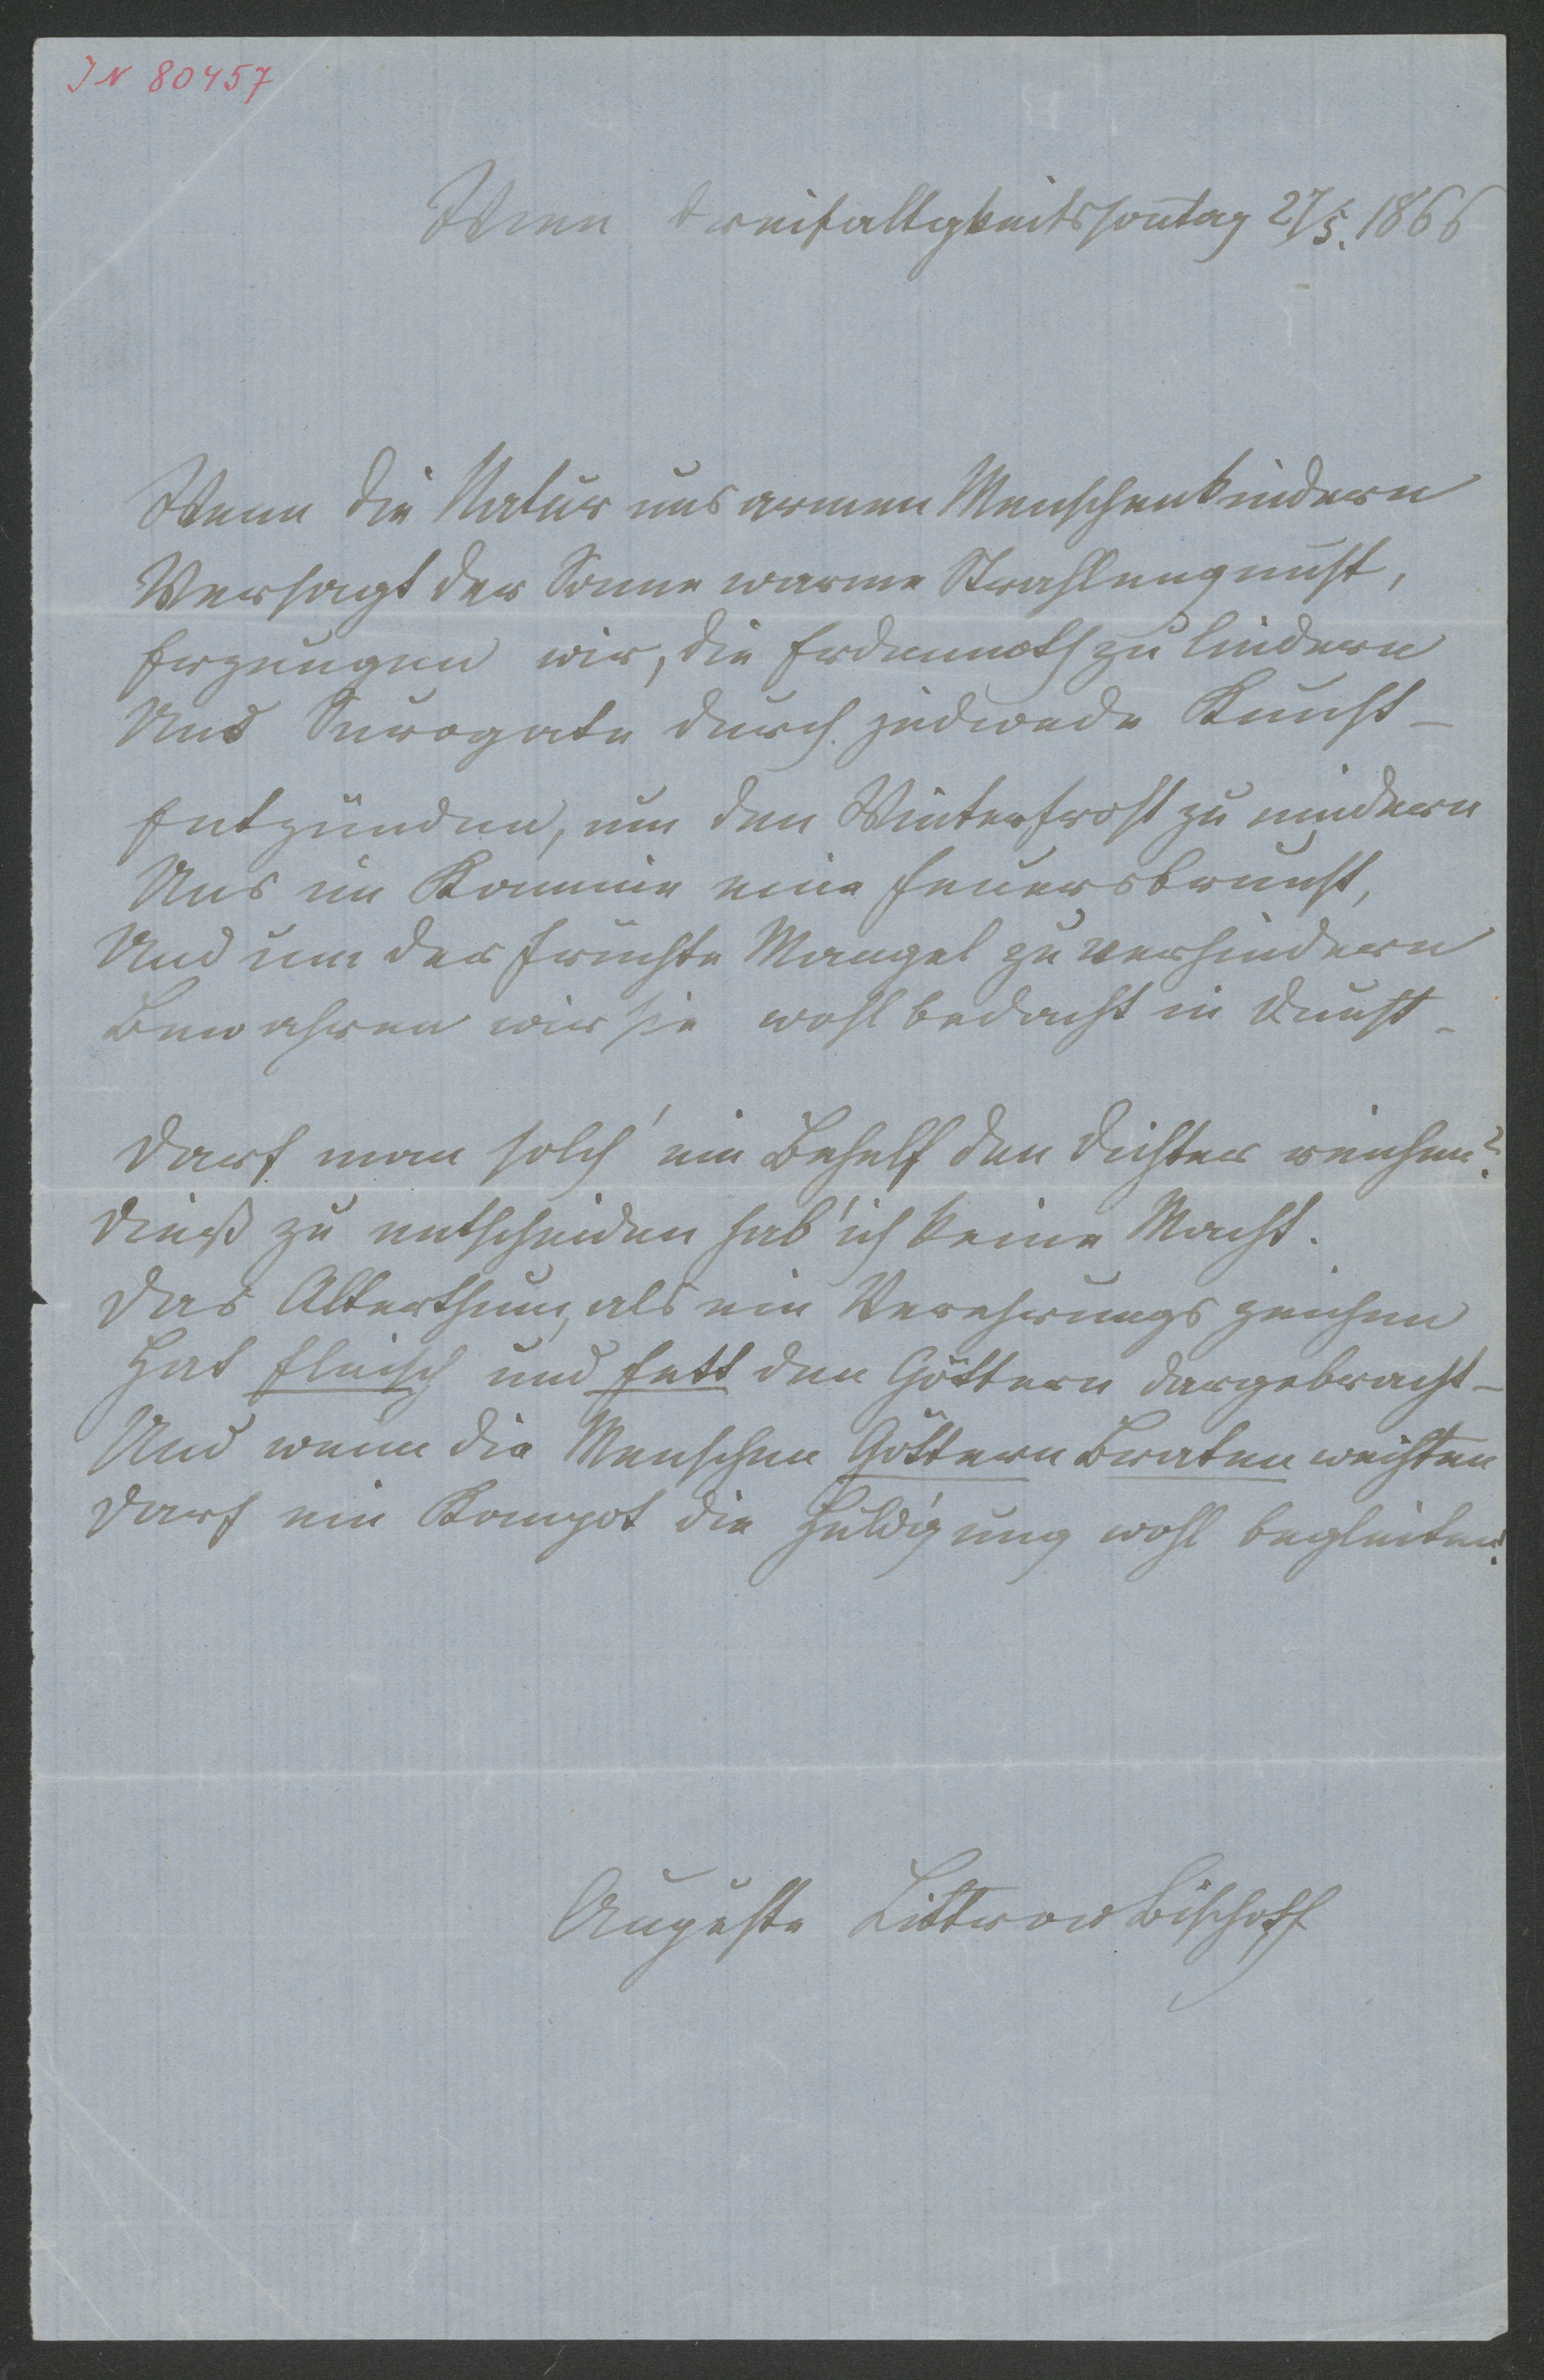 IN 80457
Wien Dreifaltigkeitssontag 27/5. 1866
Wenn die Natur uns armen Menschenkindern
Versagt der Sonne warme Strahlengunst,
Erzeugen wir, die Erdennoth zu lindern
Uns Surogate durch jedwede Kunst –
Entzünden, um den Winterfrost zu mindern
Uns im Kamine eine Feuersbrunst,
Und um der Früchte Mangel zu verhindern
Bewahren wir sie wohlbedacht in Dunst –
Darf man solch' ein Behelf den Dichter reichen?
Dieß zu entscheiden hab' ich keine Macht.
Das Alterthum, als ein Verehrungszeichen
Hat Fleisch und Fett den Göttern dargebracht –
Und wenn die Menschen Göttern Braten weihten
Darf ein Kompot die Huldigung wohl begleiten.
Auguste Littrow Bischoff